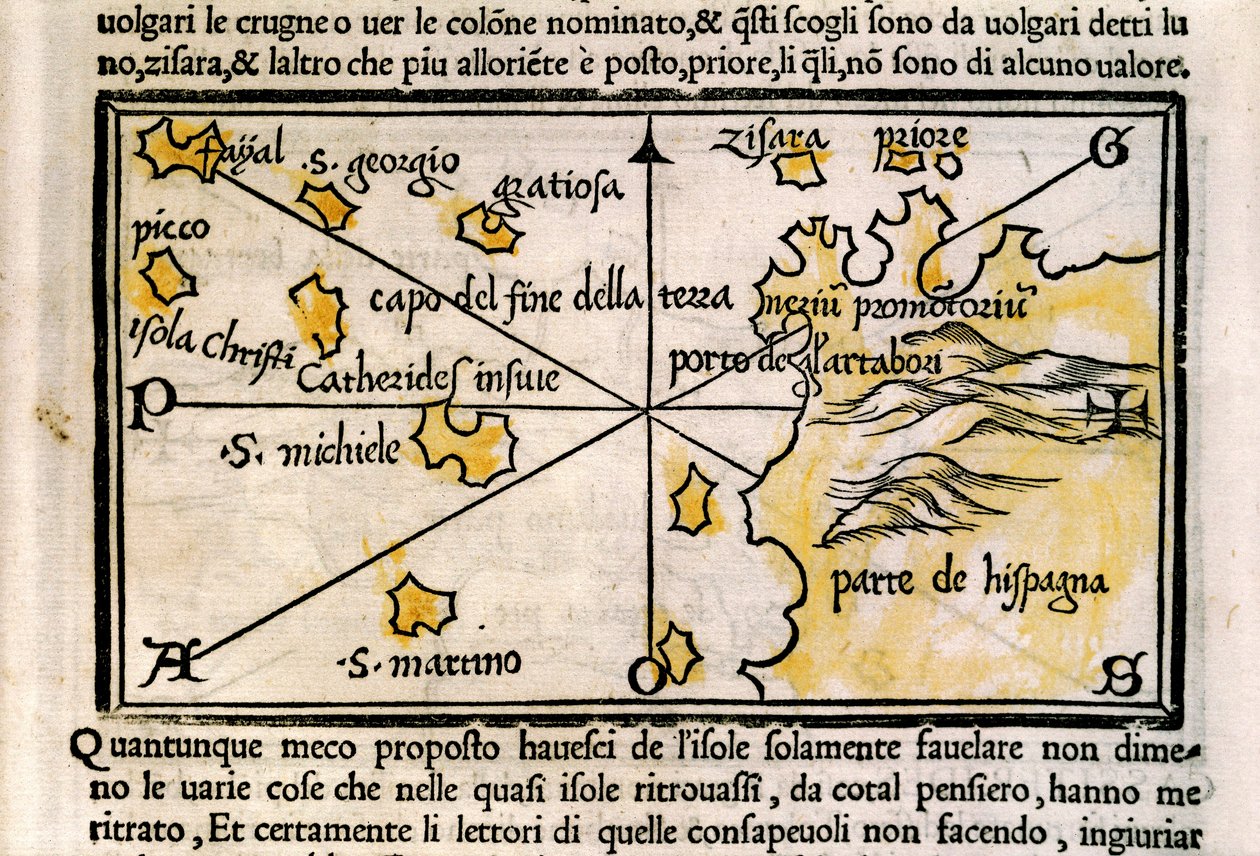 uolgari le crugne o uer le colōne nominato,& q̄sti scogli sono da uolgari detti lu
no,zisara,& laltro che piu alloriēte è posto,priore,li q̄li,nō sono di alcuno ualore.
fayal
.S. georgio
gratiosa
zisara
priore
G
picco
capo del fine della terra
neriū promōtoriū
isola Christi
porto de gl'artabori
Catherides insule
P
.S. michiele
parte de hispagna
A
.S. martino
O
S
Quantunque meco proposto hauesci de l'isole solamente fauelare non dime-
no le uarie cose che nelle quasi isole ritrouassi, da cotal pensiero, hanno me
ritrato, Et certamente li lettori di quelle consapeuoli non facendo, ingiuriar